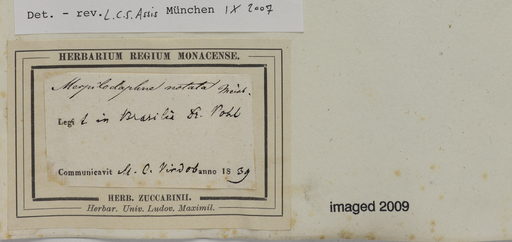 Det. - rev. L.C.S. Assis München IX 2007
HERBARIUM REGIUM MONACENSE.
Mespilodaphne notata Meisn.
Legi t in Brasilia Dr. Pohl
Communicavit M. C. Vindob anno 1839
HERB. ZUCCARINII.
Herbar. Univ. Ludov. Maximil.
imaged 2009